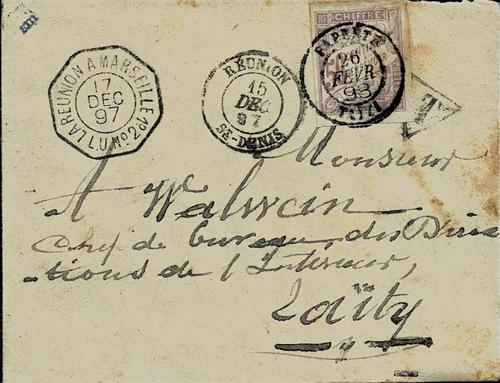 LA REUNION A MARSEILLE
17
DEC
97
L.U. No 2
REUNION
15
DEC
97
ST-DENIS
CHIFFRE
PAPEETE
26
FEVR
98
TAITI
T
Monsieur
A Walwein
Chef de bureau des Direc
-tions de l'Intérieur,
Taïty